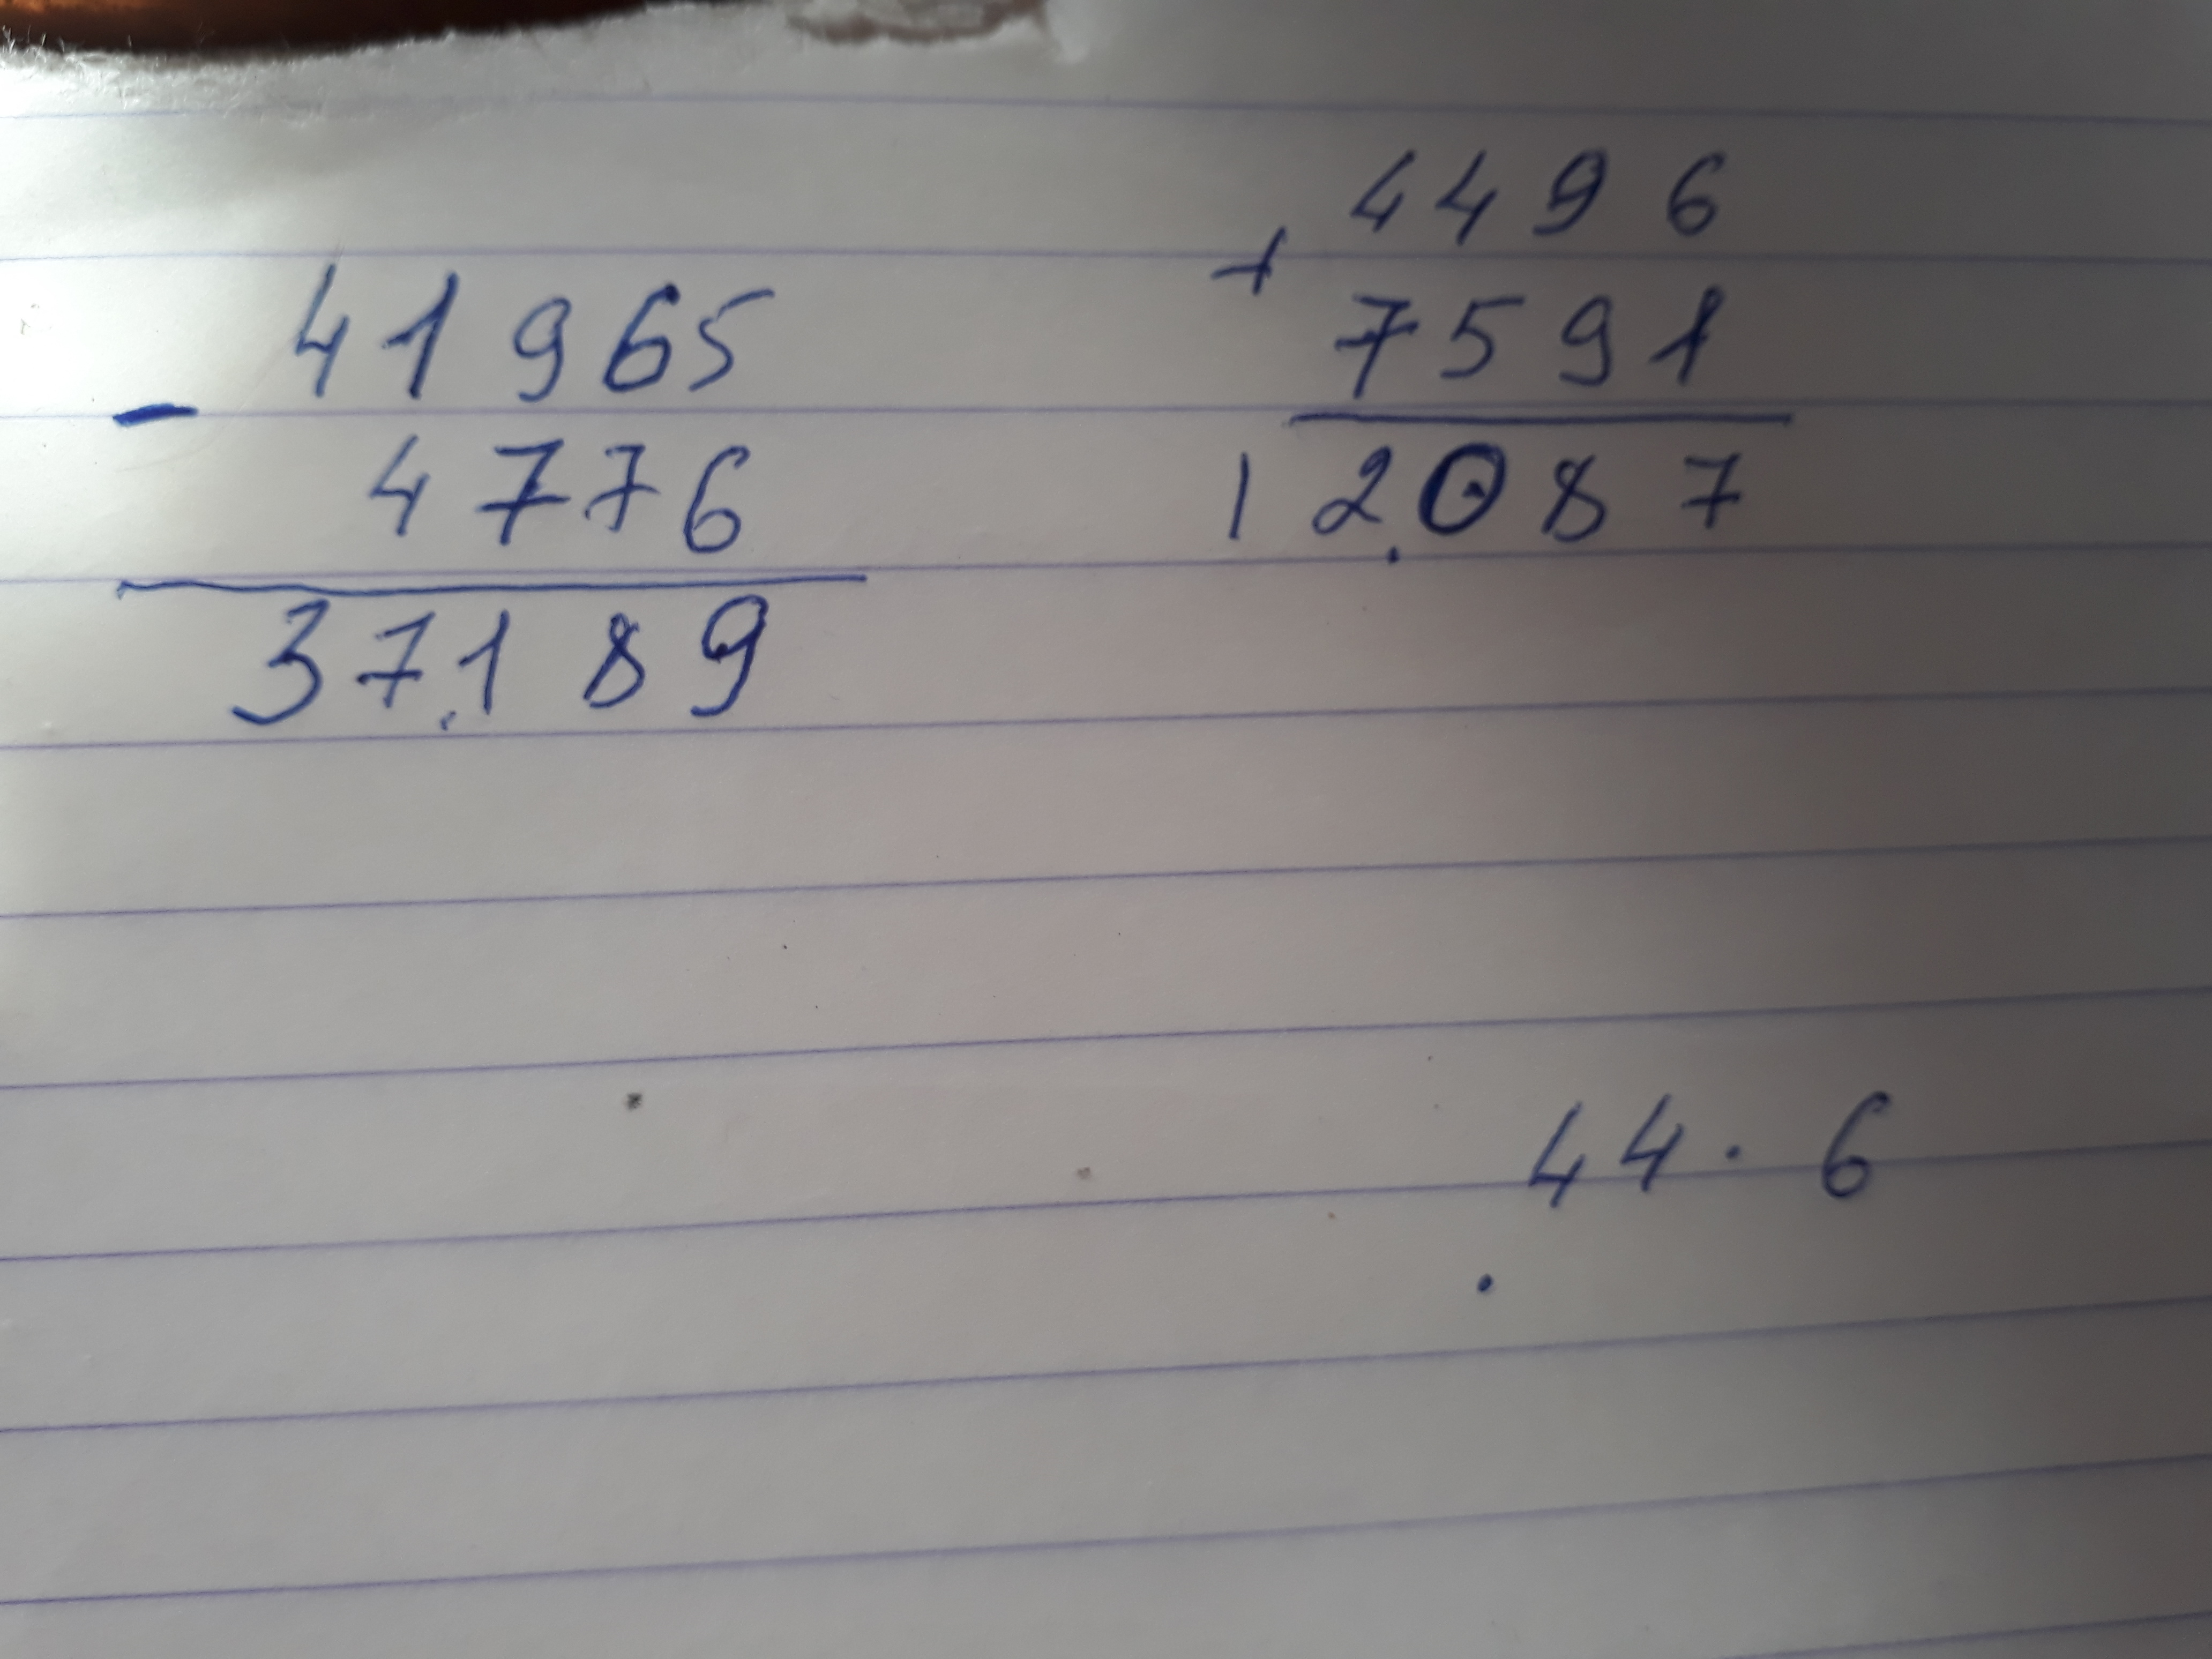 41965
-
4776
37.189
4496
+
7591
12.087
44.6
.